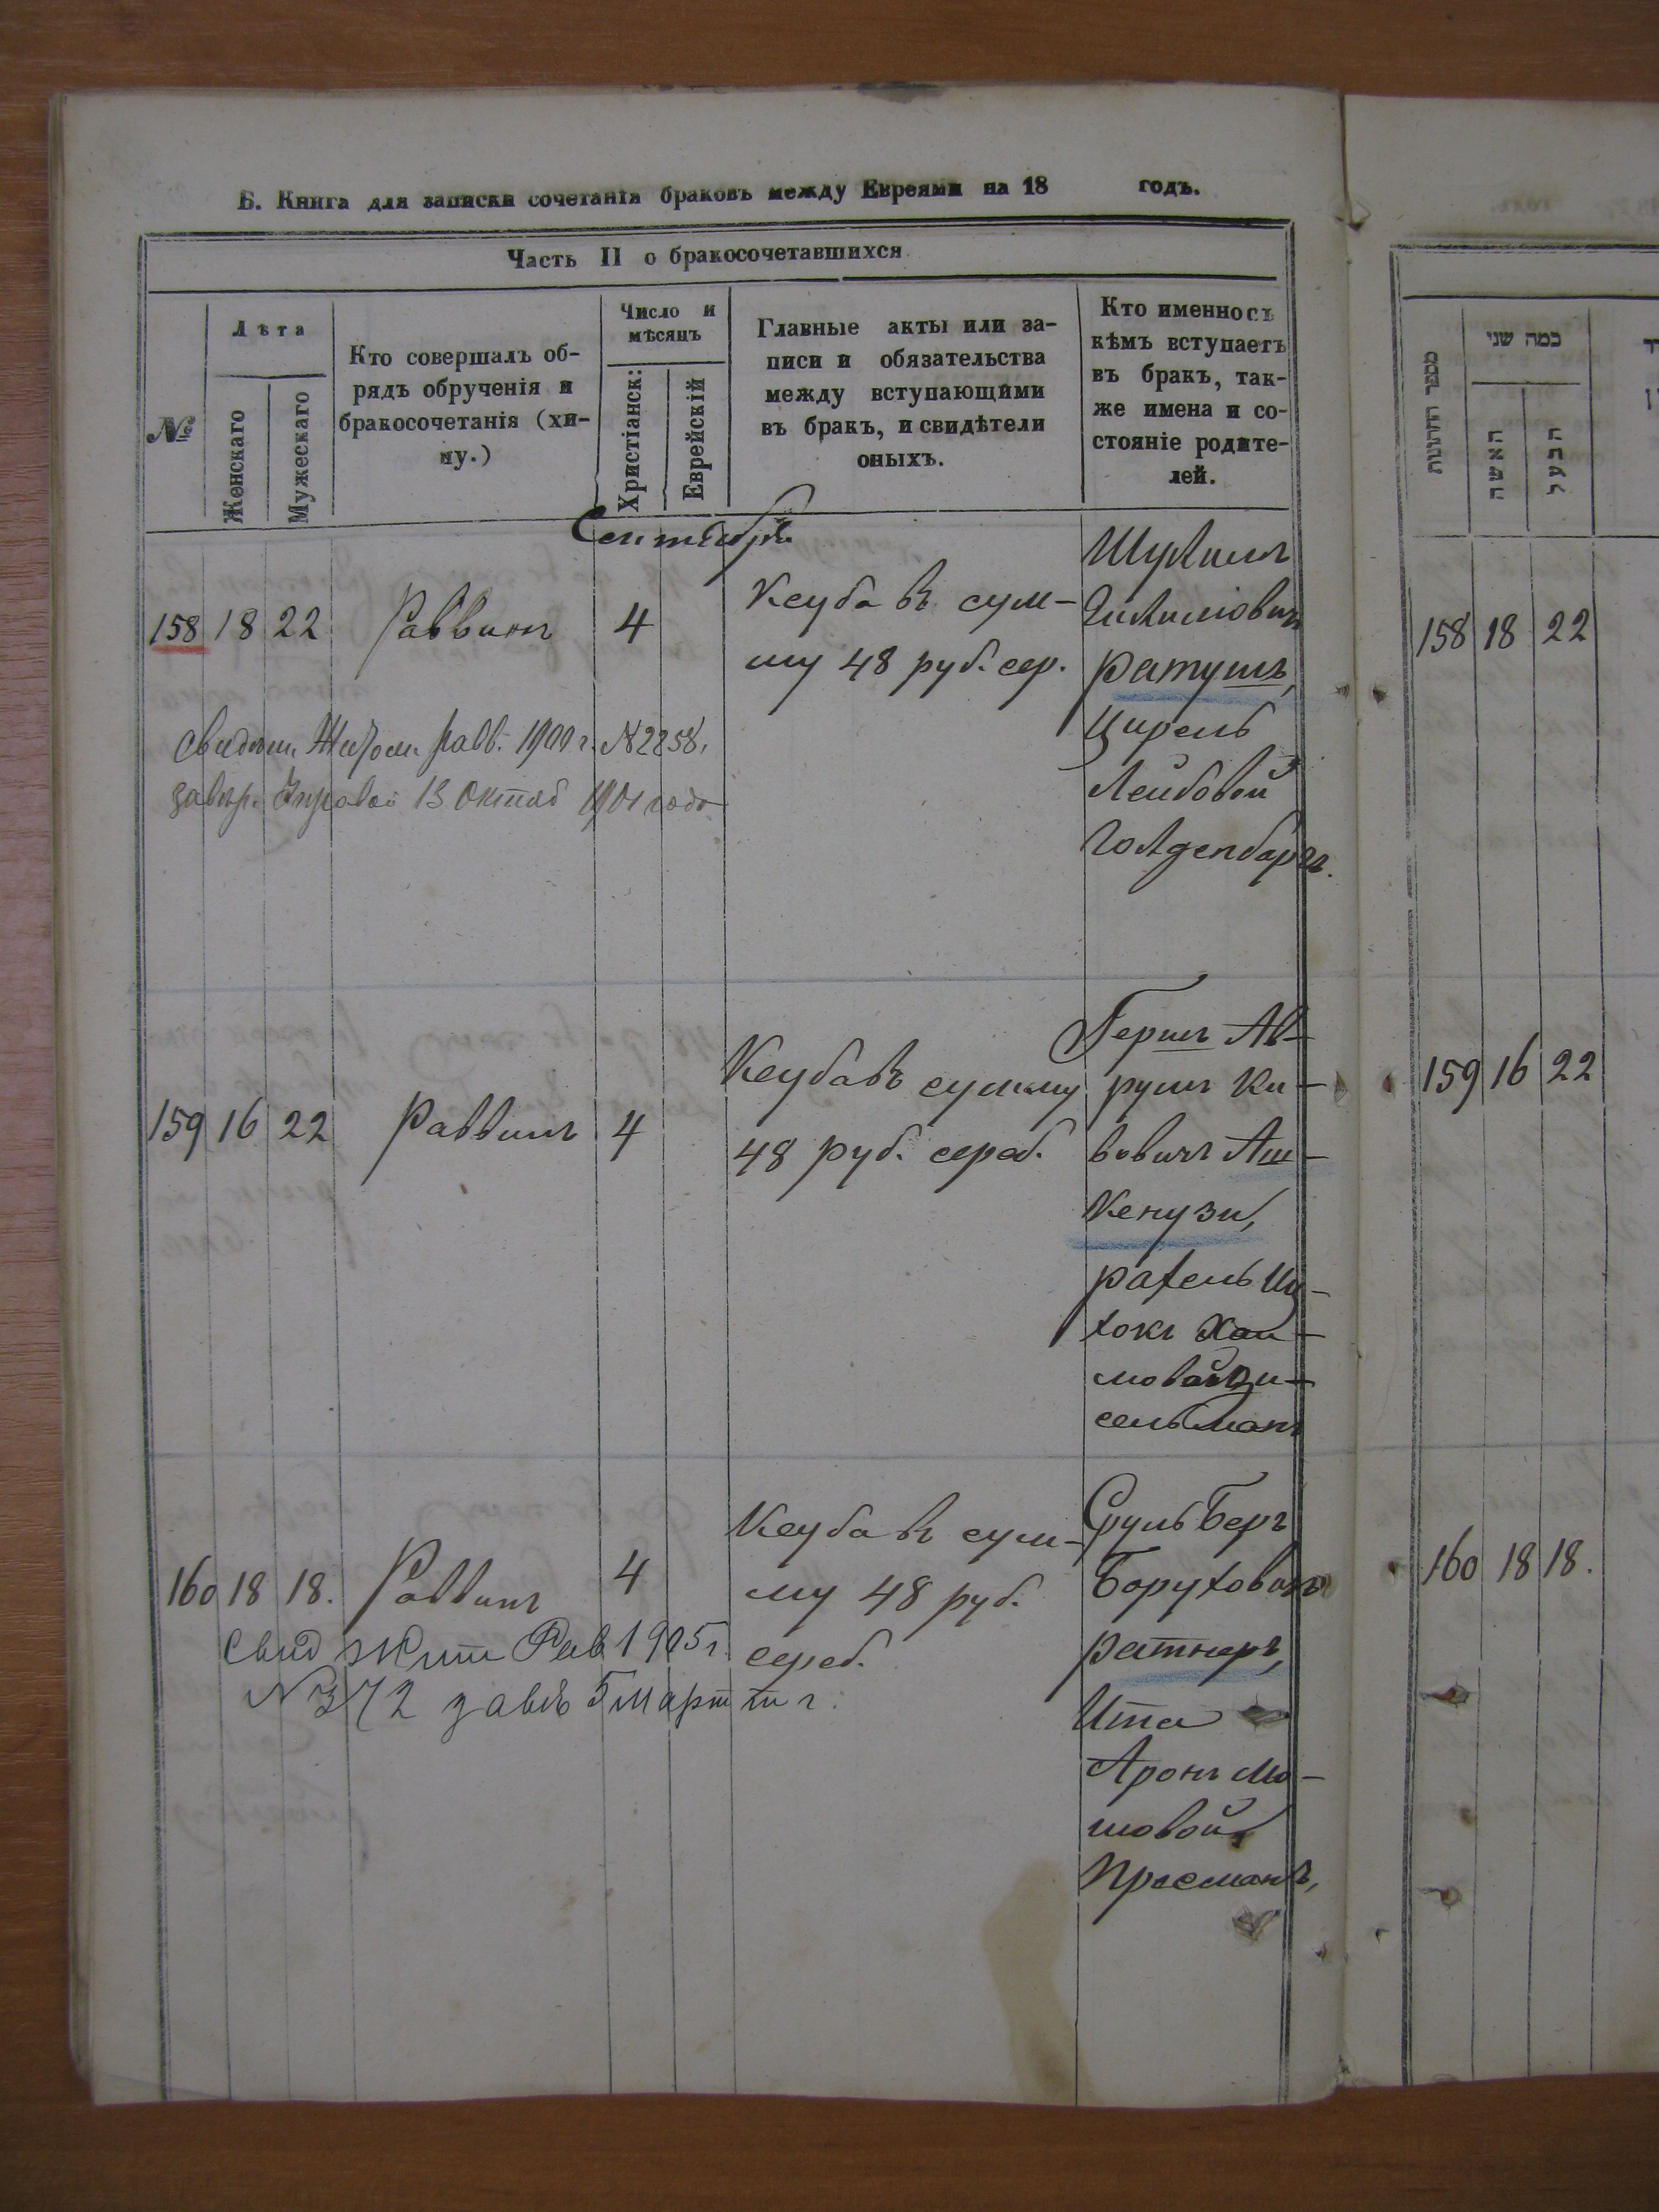 Б. Книга для записки сочетанія браковъ между Евреями на 18 годъ.
Часть II о бракосочетавшихся
№
Лѣта
Женскаго
Мужескаго
Кто совершалъ об-
рядъ обрученія и
бракосочетанія (хи-
пу.)
Число и
мѣсяцъ
Христіанск:
Еврейскій
Главные акты или за-
писи и обязательства
между вступающими
въ бракъ, и свидѣтели
оныхъ.
Кто именно съ
кѣмъ вступаетъ
въ бракъ, так-
же имена и со-
стояніе родите-
лей.
Сентября
158 18 22 Раввинъ 4
Кеуба въ сум-
му 48 руб. сер.
Шулимъ
Ратушъ,
Цирель
Лейбовой
Голденбергъ.
Свидѣт. Житом. равв. 1900 г. № 2258,
завѣр. 13 Октяб 1901 года
159 16 22 Раввинъ 4
Кеуба въ сумму
48 руб. сереб.
Гершъ Ав-
румъ Ки-
вовичъ Аш-
кенузи,
Рахель Иц-
хокъ Хаи-
мовой Зи-
сельманъ
160 18 18. Раввинъ 4
Кеуба въ сум-
му 48 руб.
сереб.
Сруль Беръ
Боруховичъ
Ратнеръ,
Ита
Аронъ Мо-
шовой
Пресманъ,
Свид Жит Рав 1905 г.
N 372 завѣ 5 март т г.
מספר החתונות
כמה שני
האשה
הבעל
158 18 22
159 16 22
160 18 18.